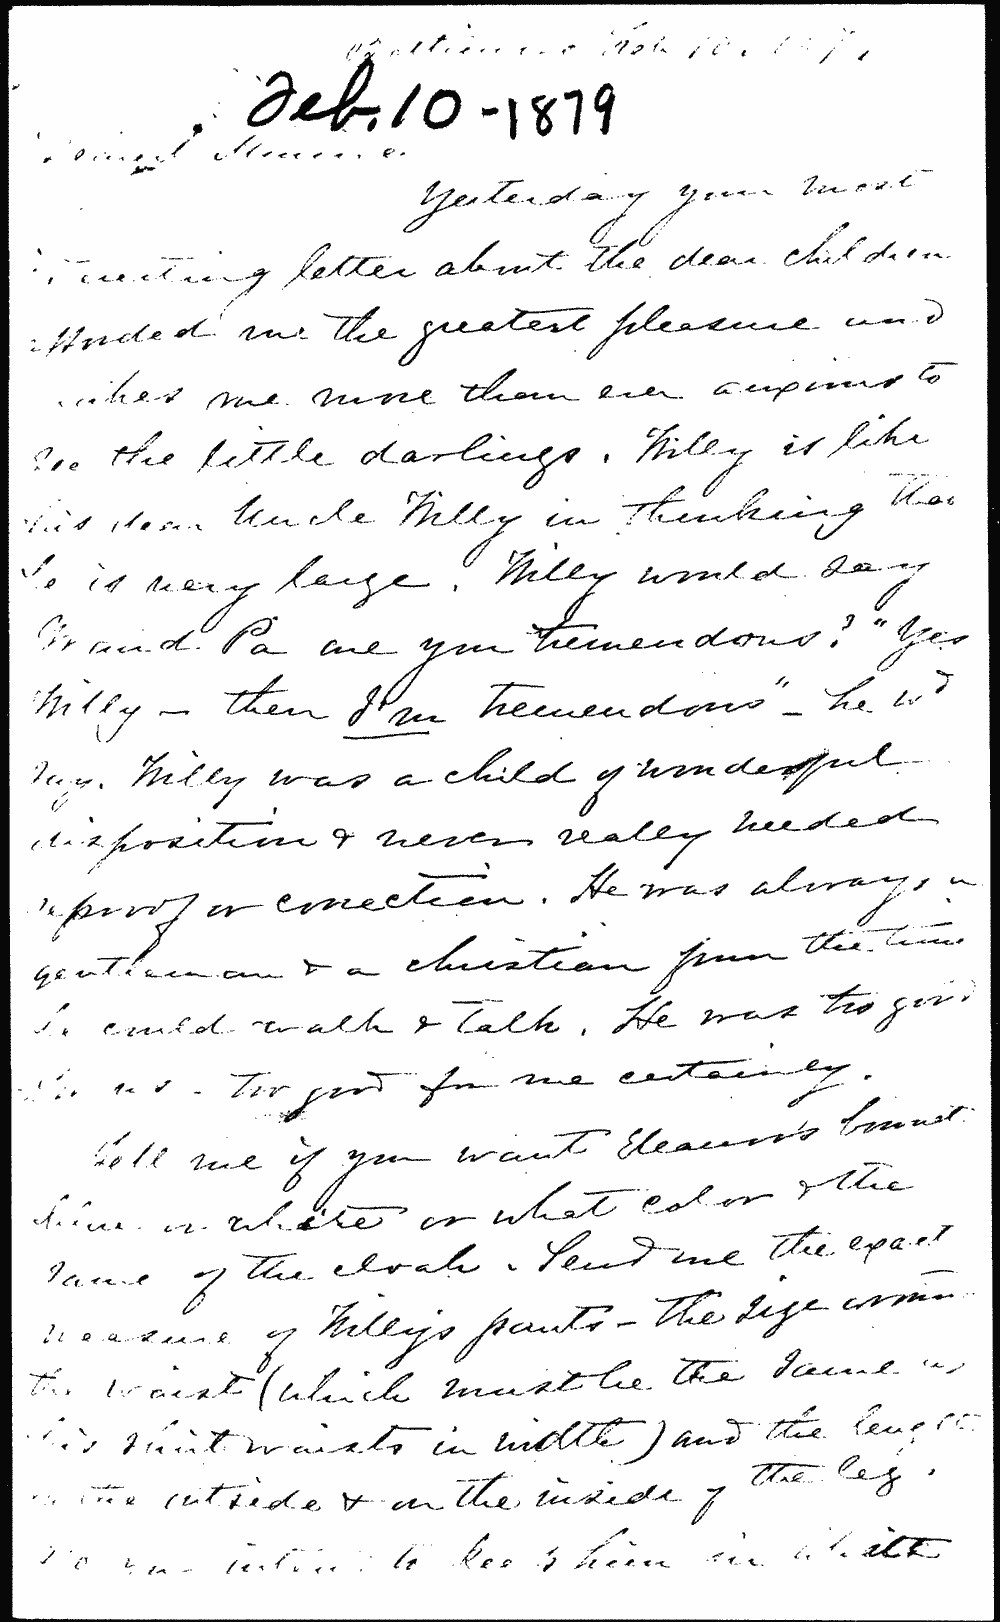 Baltimore Feb 10. 187
Feb. 10 - 1879
Yesterday your most
interesting letter about the dear children
afforded me the greatest pleasure and
makes me more than ever anxious to
see the little darlings. Willy is like
his dear Uncle Willy in thinking that
he is very large. Willy would say
Grand Pa are you tremendous? "Yes
Willy – then I'm tremendous" – he wd
say. Willy was a child of wonderful
disposition & never really needed
reproof or correction. He was always a
gentleman & a christian from the time
he could walk & talk. He was too good
for us - too good for me certainly.
Tell me if you want Eleanor's bonnet
blue or white or what color & the
same of the cloak. Send me the exact
measure of Willy's pants – the size around
the waist (which must be the same as
his shirt waists in width) and the length
on the outside & on the inside of the leg.
Do you intend to keep him in white